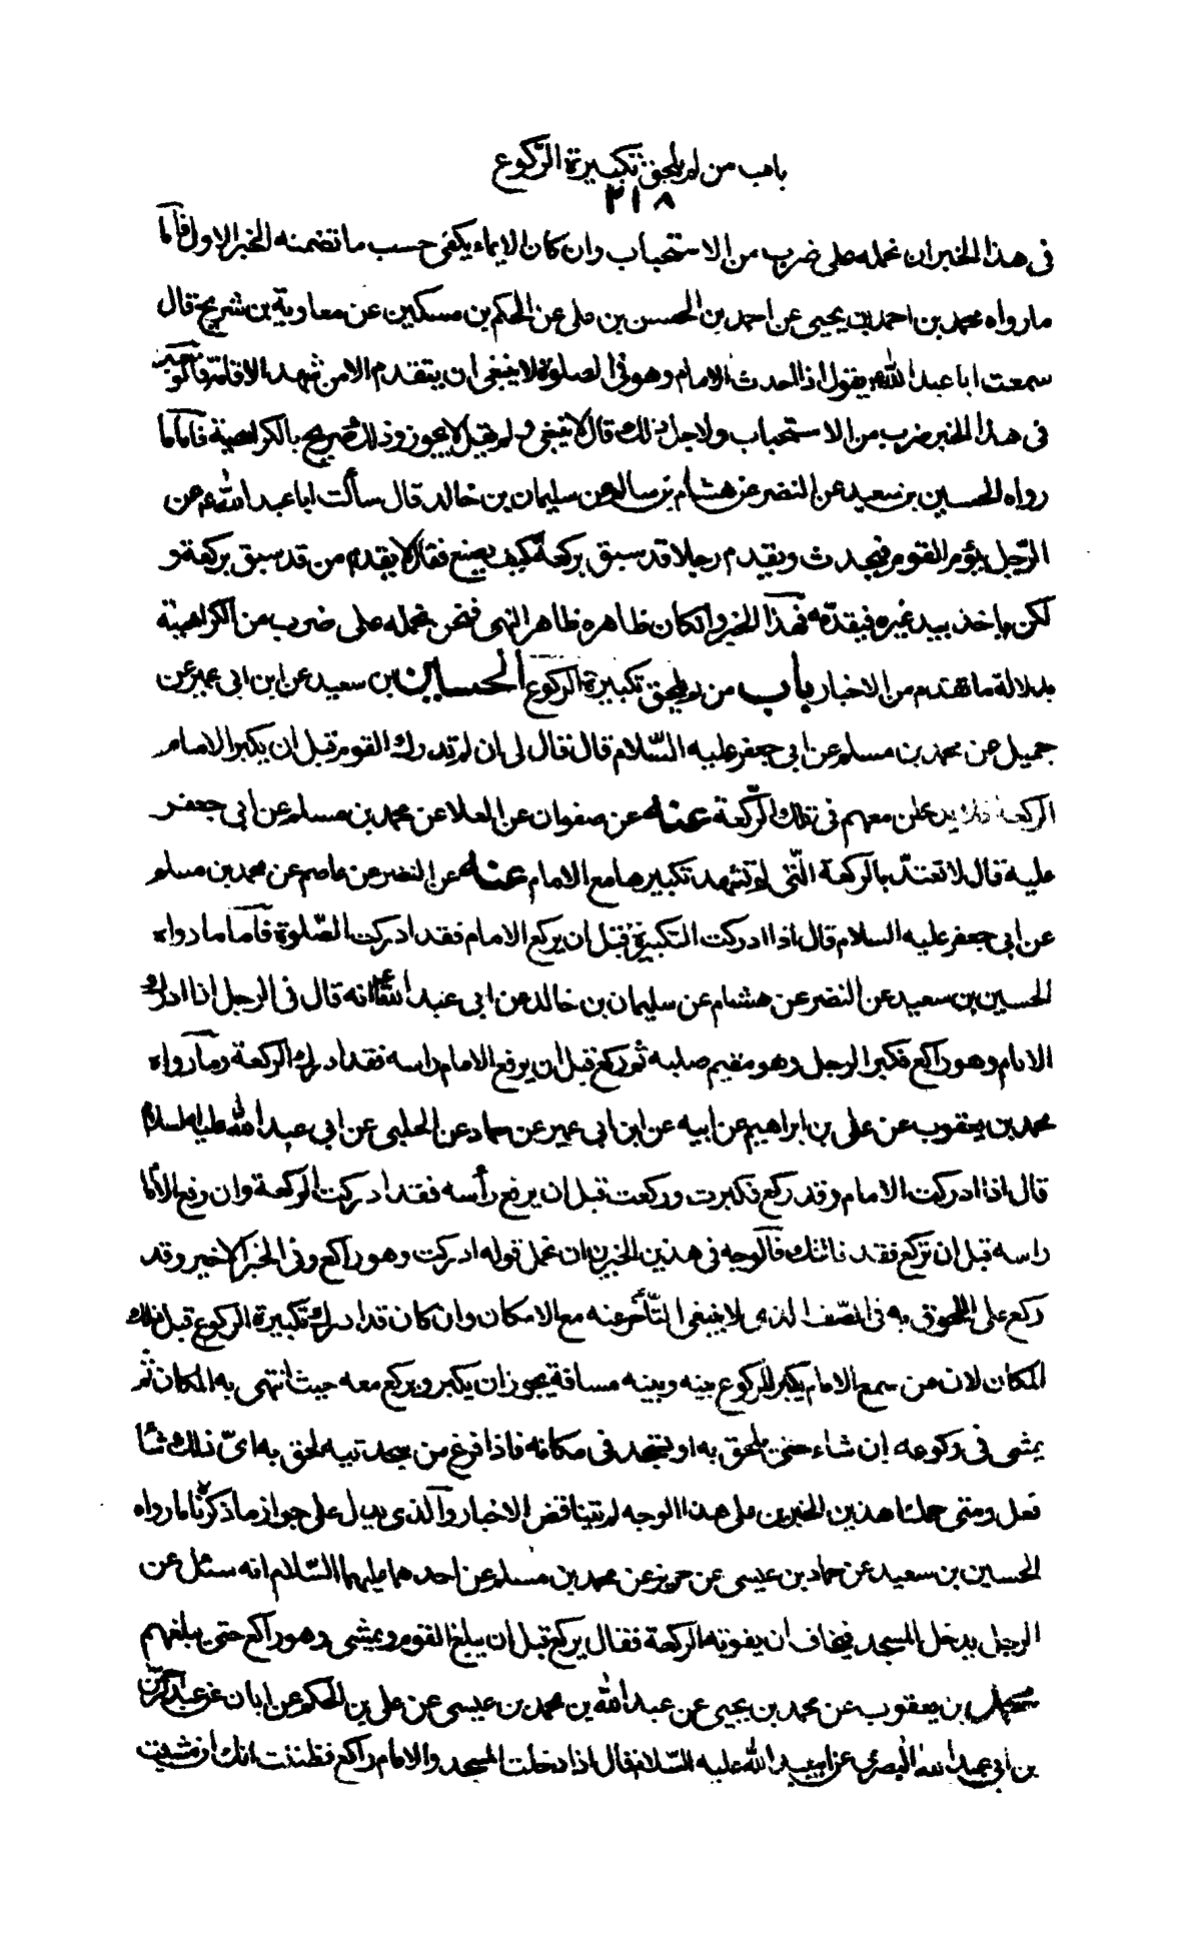 باب من لم يلحق تكبيرة الركوع
٢١٨
فى هذا الخبر ان نحمله على ضرب من الاستحباب وان كان الايماء يكفى حسب ما تضمنه الخبر الاول فاما
ما رواه محمد بن احمد بن يحيى عن احمد بن الحسن بن على عن الحكم بن مسكين عن معاوية بن شريح قال
سمعت ابا عبد الله ع يقول اذا احدث الامام وهو فى الصلوة لا ينبغى ان يتقدم الا من شهد الاقامة فالوجه
فى هذا الخبر ضرب من الاستحباب ولاجل ذلك قال لا ينبغى ولم يقل لا يجوز وذلك صريح بالكراهية فاما ما
رواه الحسين بن سعيد عن النضر عن هشام بن سالم عن سليمان بن خالد قال سألت ابا عبد الله ع عن
الرّجل يؤم القوم فيحدث ويقدم رجلا قد سبق بركعة كيف يصنع فقال لا يقدم من قد سبق بركعة و
لكن ياخذ بيد غيره فيقدّمه فهذا الخبر وان كان ظاهره ظاهر النهى فنحن نحمله على ضرب من الكراهية
بدلالة ما تقدم من الاخبار باب من لم يلحق تكبيرة الركوع الحسين بن سعيد عن ابن ابى عمير عن
جميل عن محمد بن مسلم عن ابى جعفر عليه السّلام قال قال لى ان لم تدرك القوم قبل ان يكبر الامام
الركعة فلا تدخلن معهم فى تلك الرّكعة عنه عن صفوان عن العلا عن محمد بن مسلم عن ابى جعفر
عليه قال لا تعتدّ بالركعة الّتى لم تشهد تكبيرها مع الامام عنه عن النضر عن عاصم عن محمد بن مسلم
عن ابى جعفر عليه السلام قال اذا ادركت التكبيرة قبل ان يركع الامام فقد ادركت الصّلوة فاما ما رواه
الحسين بن سعيد عن النضر عن هشام عن سليمان بن خالد عن ابى عبد الله ع انه قال فى الرجل اذا ادرك
الامام وهو راكع فكبر الرجل وهو مقيم صلبه ثم ركع قبل ان يرفع الامام راسه فقد ادرك الركعة وما رواه
محمد بن يعقوب عن على بن ابراهيم عن ابيه عن ابن ابى عمير عن حماد عن الحلبى عن ابى عبد الله عليه السلام
قال اذا ادركت الامام وقد ركع فكبرت وركعت قبل ان يرفع رأسه فقد ادركت الركعة وان رفع الامام
راسه قبل ان تركع فقد فاتتك فالوجه فى هذين الخبرين ان نحمل قوله ادركت وهو راكع وفى الخبر الاخير وقد
ركع على اللحوق به فى الصّف الذى لا ينبغى التّأخر عنه مع الامكان وان كان قد ادرك تكبيرة الركوع قبل ذلك
المكان لان من سمع الامام يكبر للركوع بينه وبينه مسافة يجوز ان يكبر ويركع معه حيث انتهى به المكان ثم
يمشى فى ركوعه ان شاء حتى يلحق به او يسجد فى مكانه فاذا فرغ من سجدتيه لحق به اىّ ذلك شاء
فعل ومتى حملنا هذين الخبرين على هذا الوجه لم تتناقض الاخبار والذى يدل على جواز ما ذكرناه ما رواه
الحسين بن سعيد عن حماد بن عيسى عن حريز عن محمد بن مسلم عن احدهما عليهما السّلام انه سئل عن
الرجل يدخل المسجد فيخاف ان يفوته الركعة فقال يركع قبل ان يبلغ القوم ويمشى وهو راكع حتى يبلغهم
محمد بن يعقوب عن محمد بن يحيى عن عبد الله بن محمد بن عيسى عن على بن الحكم عن ابان عن عبد الرحمن
بن ابى عبد الله البصرى عن ابى عبد الله عليه السّلام قال اذا دخلت المسجد والامام راكع فظننت انك ان مشيت